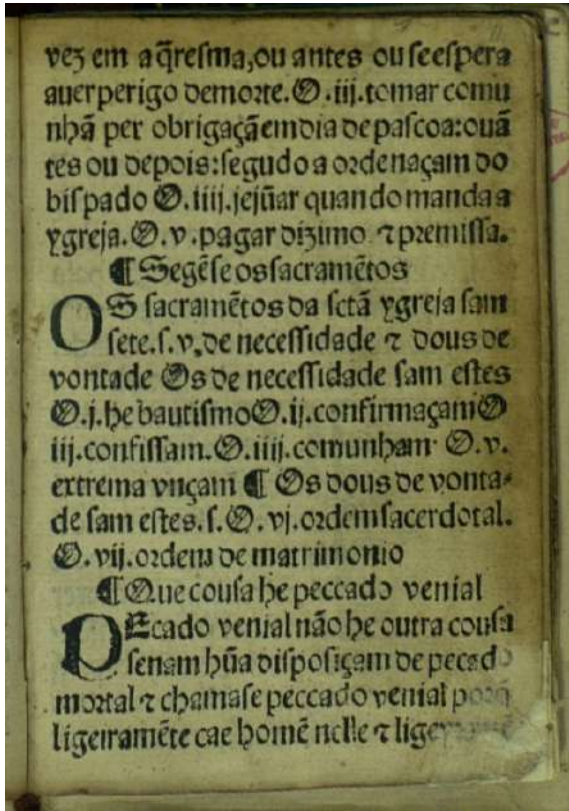 vez em a q̃resma, ou antes ou se espera
auer perigo de morte. O .iij. tomar comu
nhã per obrigaçã em dia de pascoa: ou ã
tes ou depois: segũdo a ordenaçam do
bispado O .iiij. jejũar quando manda a
ygreja. O .v. pagar dizimo ⁊ premissa.
¶ Segẽse os sacramẽtos
OS sacramẽtos da sctã ygreja sam
sete. s. v. de necessidade ⁊ dous de
vontade Os de necessidade sam estes
O .j. he bautismo O .ij. confirmaçam O
iij. confissam. O .iiij. comunham. O .v.
extrema vnçam ¶ Os dous de vonta⸗
de sam estes. s. O .vj. ordem sacerdotal.
O .vij. ordem de matrimonio
¶ Que cousa he peccado venial
PEcado venial não he outra cousa
senam hũa disposiçam de pecado
mortal ⁊ chamase peccado venial porq̃
ligeiramẽte cae homẽ nelle ⁊